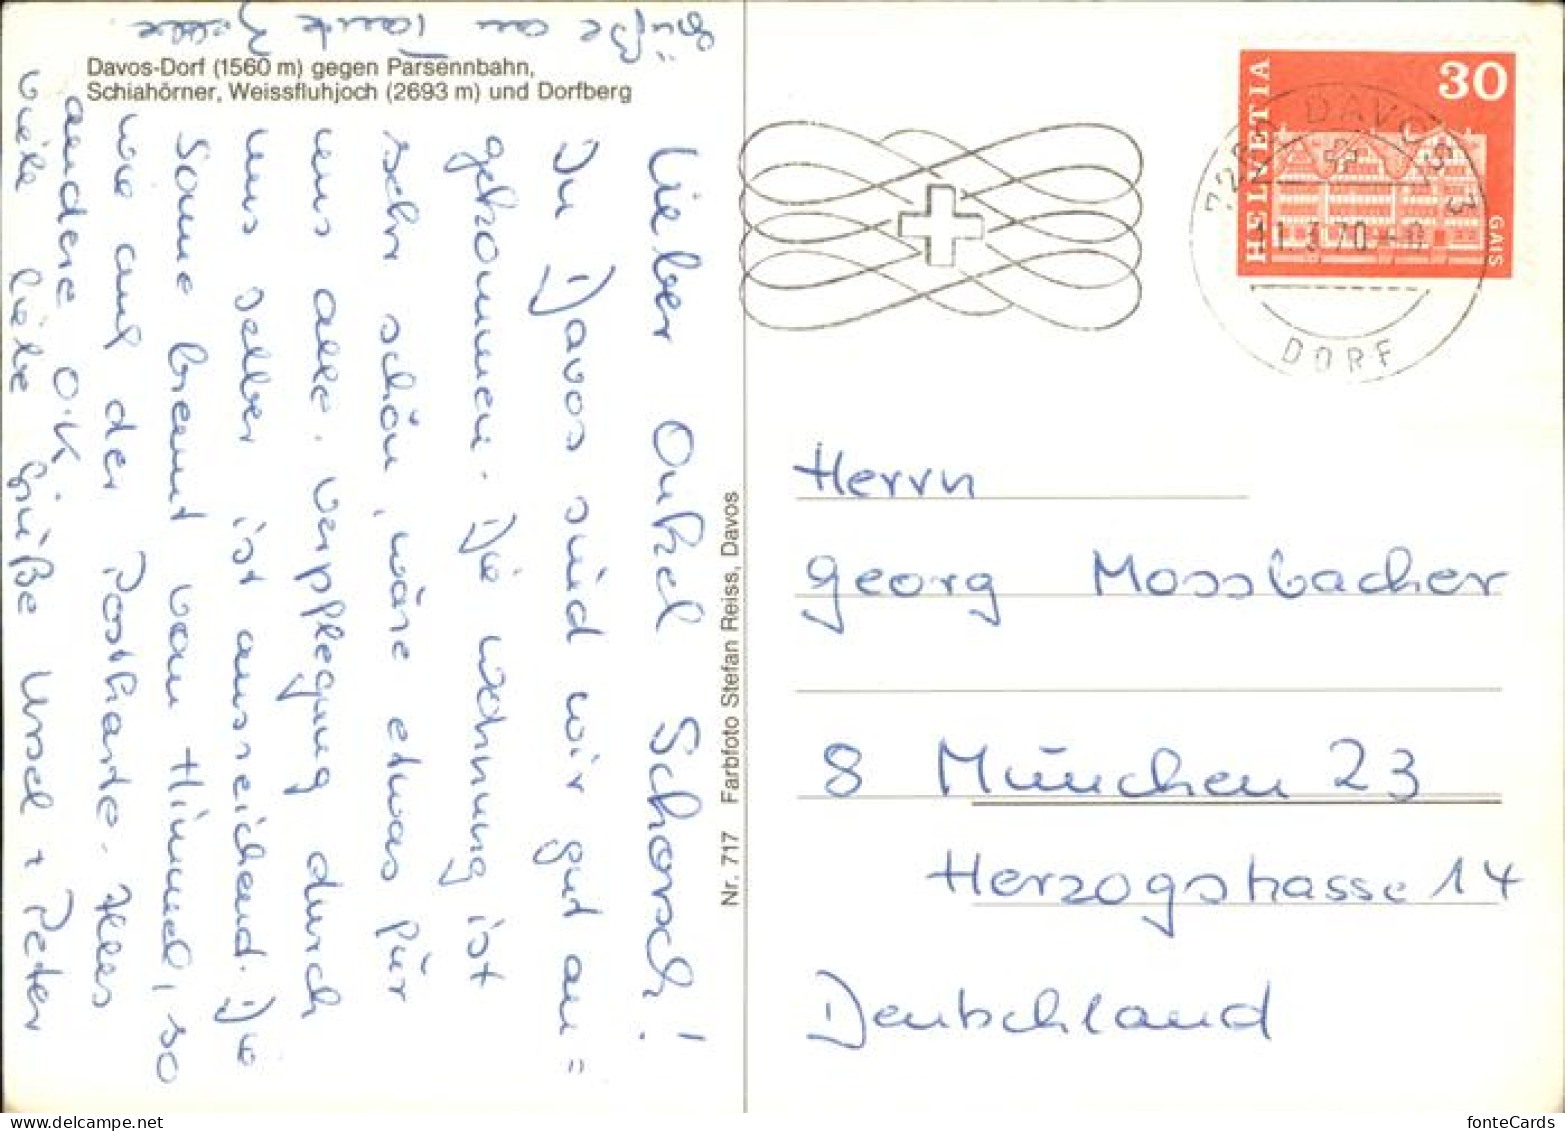 Davos-Dorf (1560 m) gegen Parsennbahn,
Schiahörner, Weissfluhjoch (2693 m) und Dorfberg
Lieber Onkel Schorsch!
In Davos sind wir gut an=
gekommen. Die Wohnung ist
sehr schön, wäre etwas für
uns alle. Verpflegung durch
uns selber ist ausreichend. Die
Sonne brennt vom Himmel, so
wie auf der Postkarte. Alles
andere O.K.
viele liebe Grüße Ursel + Peter
Grüße an Tante
Nr. 717 Farbfoto Stefan Reiss, Davos
HELVETIA
30
GAIS
DAVOS 3
11.3.70
DORF
Herrn
Georg Mossbacher
8 München 23
Herzogstrasse 14
Deutschland
fonteCards